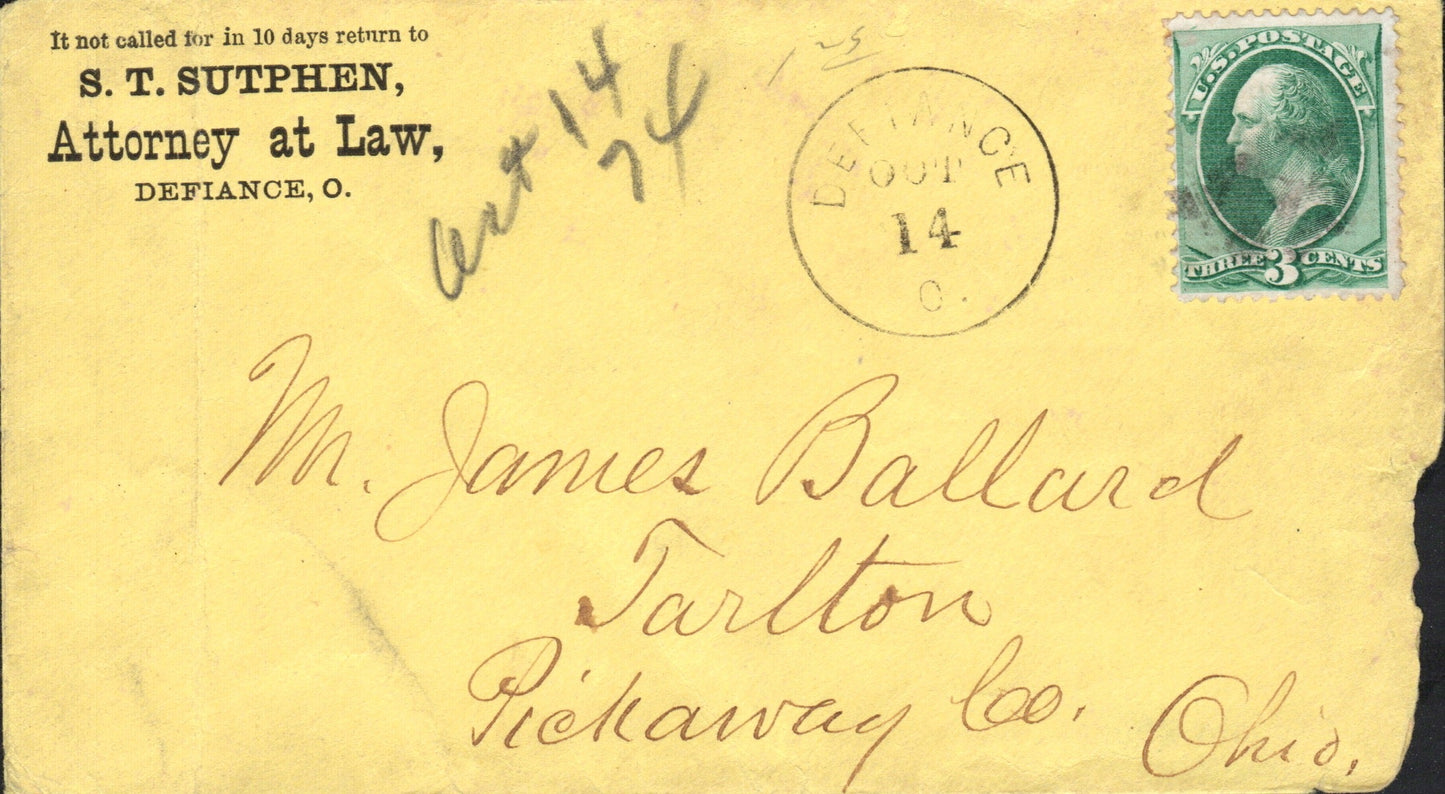 It not called for in 10 days return to
S. T. SUTPHEN,
Attorney at Law,
DEFIANCE, O.
Oct 14
74
DEFIANCE
OCT
14
O.
U.S. POSTAGE
THREE 3 CENTS
Mr. James Ballard
Tarlton
Pickaway Co.
Ohio.